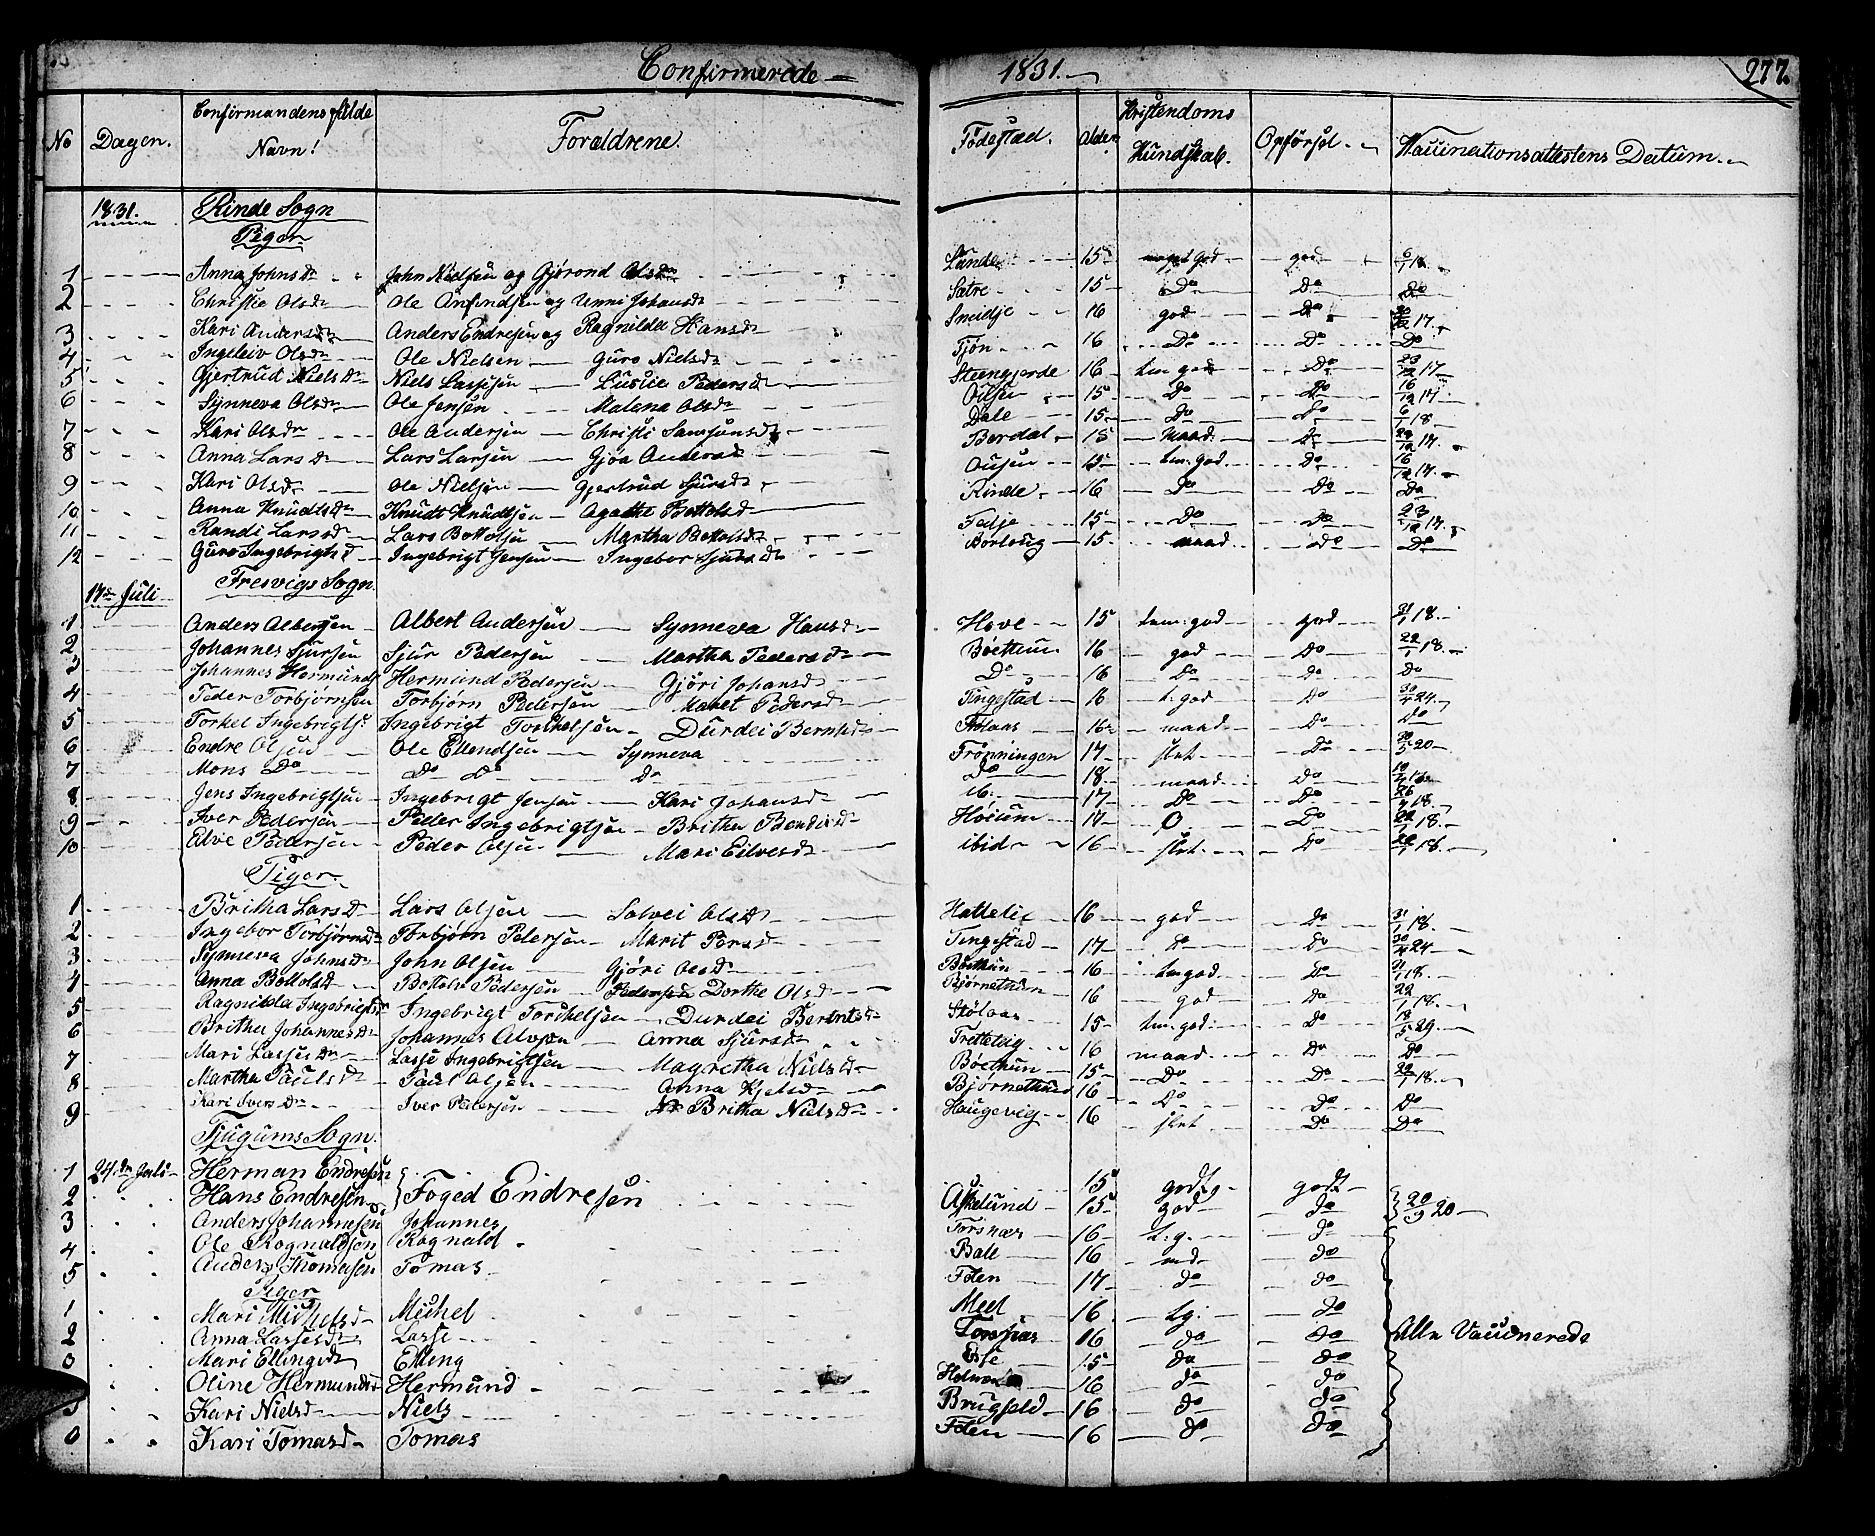 Confirmerede — 1831. 277.
No Dagen. Confirmandens fulde Navn! Forældrene. Fødestad. Alder Kristendoms Kundskab. Opførsel. Vaccinationsattestens Datum.
1831. Rinde Sogn
Piger
1 Anna Johnsdr John Nielsen og Gjørond Olsdr Lunde 15 meget god god 6/1 18.
2 Christie Olsdr Ole Anfindsen og Unni Johansdr Sætre 15 Do Do Do
3 Kari Andersdr Anders Endresen og Ragnilda Hansdr Sneidje 16 god Do 17.
4 Ingeleiv Olsdr Ole Nielsen Guro Nielsdr Tjøn 16 Do Do Do
5 Gjertrud Nielsdr Niels Lassesen Lussie Pedersdr Steengjerde 16 tem. god Do 23/12 17
6 Synneva Olsdr Ole Jensen Malena Olsdr 15 Do Do 16/12 17
7 Kari Olsdr Ole Andersen Christi Samsonsdr Dale 15 Do Do 6/1 18
8 Anna Larsdr Larsen Gjøa Andersdr Berdal 15 maad. Do 17.
9 Kari Olsdr Ole Nielsen Gjertrud Sjursdr Ousen 15 tem. god. Do 16/12 17
10 Anna Knudtsdr Knudt Knudtsen Agathe Bottolsdr Rinde 16 Do Do Do
11 Randi Larsdr Lars Bottolsen Martha Bottolsdr Feije 15 Do Do 23/12 17.
12 Guro Ingebrigtsd Ingebrigt Jensen Ingebor Sjursdr Børloug 15 maad Do Do
17de Juli Fresvigs Sogn
1 Anders Albertsen Albert Andersen Synneva Hansdr Hove 15 tem. god god 31/1 18.
2 Johannes Sjursen Sjur Pedersen Martha Pedersdr Bøethun 16 god Do 22/1 18.
3 Johannes Hermunds Hermund Pedersen Gjøri Johansdr Do 16 Do Do Do
4 Peder Torbjørnsen Torbjørn Pedersen Maret Pedersdr Tingestad 16 t. god Do 24
5 Torkel Ingebrigtse Ingebrigt Torkelsen Durdei Berntsdr 16 maad Do Do
6 Endre Olsen Ole Ellendsen Synneva Frønningen 17 slet Do 20
7 Mons Do Do Do Do Do 18 maad Do
8 Jens Ingebrigtsen Ingebrigt Jensen Kari Johansdr ib. 17 Do Do 18.
9 Iver Pedersen Peder Ingebrigtsen Britha Bendixdr Høium 17 O Do 22/1 18.
10 Elve Pedersen Peder Olsen Mari Eilvesdr ibid 16 slet Do 18.
Piger.
1 Britha Larsdr Lars Olsen Solvei Olsdr Hattelie 16 god Do 31/1 18.
2 Ingebor Torbjørnsdr Torbjørn Pedersen Marit Persdr Tingestad 17 Do Do 24
3 Synneva Johnsdr John Olsen Gjøri Olsdr Bøethun 16 tem god Do 18.
4 Anna Bottolsd Bottolv Pedersen Pedersen Dorthe Olsd Bjørnethun 16 god Do 22/1 18.
5 Ragnilda Ingebrigtsdr Ingebrigt Torkelsen Durdei Berntsdr Stølaas 15 tem. god. Do 18/5 29.
6 Britha Johannesdr Johannes Olvsen Anna Sjursdr Frettelig 16 maad Do Do
7 Mari Lassesdr Lasse Ingebrigtsen Magretha Nielsdr Bøethun 15 Do Do 22/1 18.
8 Martha Paulsdr Paul Olsen Anna Kjelsdr Bjørnethun 16 Do Do Do
9 Kari Iversdr Iver Pedersen Britha Nielsdr Haugevig 16 slet Do Do
Tjugums Sogn.
1 24de Juli Herman Endresen } Foged Endresen 15 godt godt
2 Hans Endresen Askelund 15 god do } 20/9 20
3 Anders Johannesen Johannes Torsnæs 16 t. g. do
4 Ole Rognaldsen Rognald Bale 16 md do
5 Anders Thomasen Tomas Feten 17 do do
Piger
1 Mari Michelsd Michel Meel 16 tg. do
2 Anna Lassesdr Lasse Torsnæs 16 do do Alle Vaccinerede
Mari Ellingsdr Elling Ese 15 do do
Oline Hermundsd Hermund 16 do do
5 Kari Nielsdr Niels Brugfeld 16 do do
Kari Tomasd Tomas Feten 16 do do